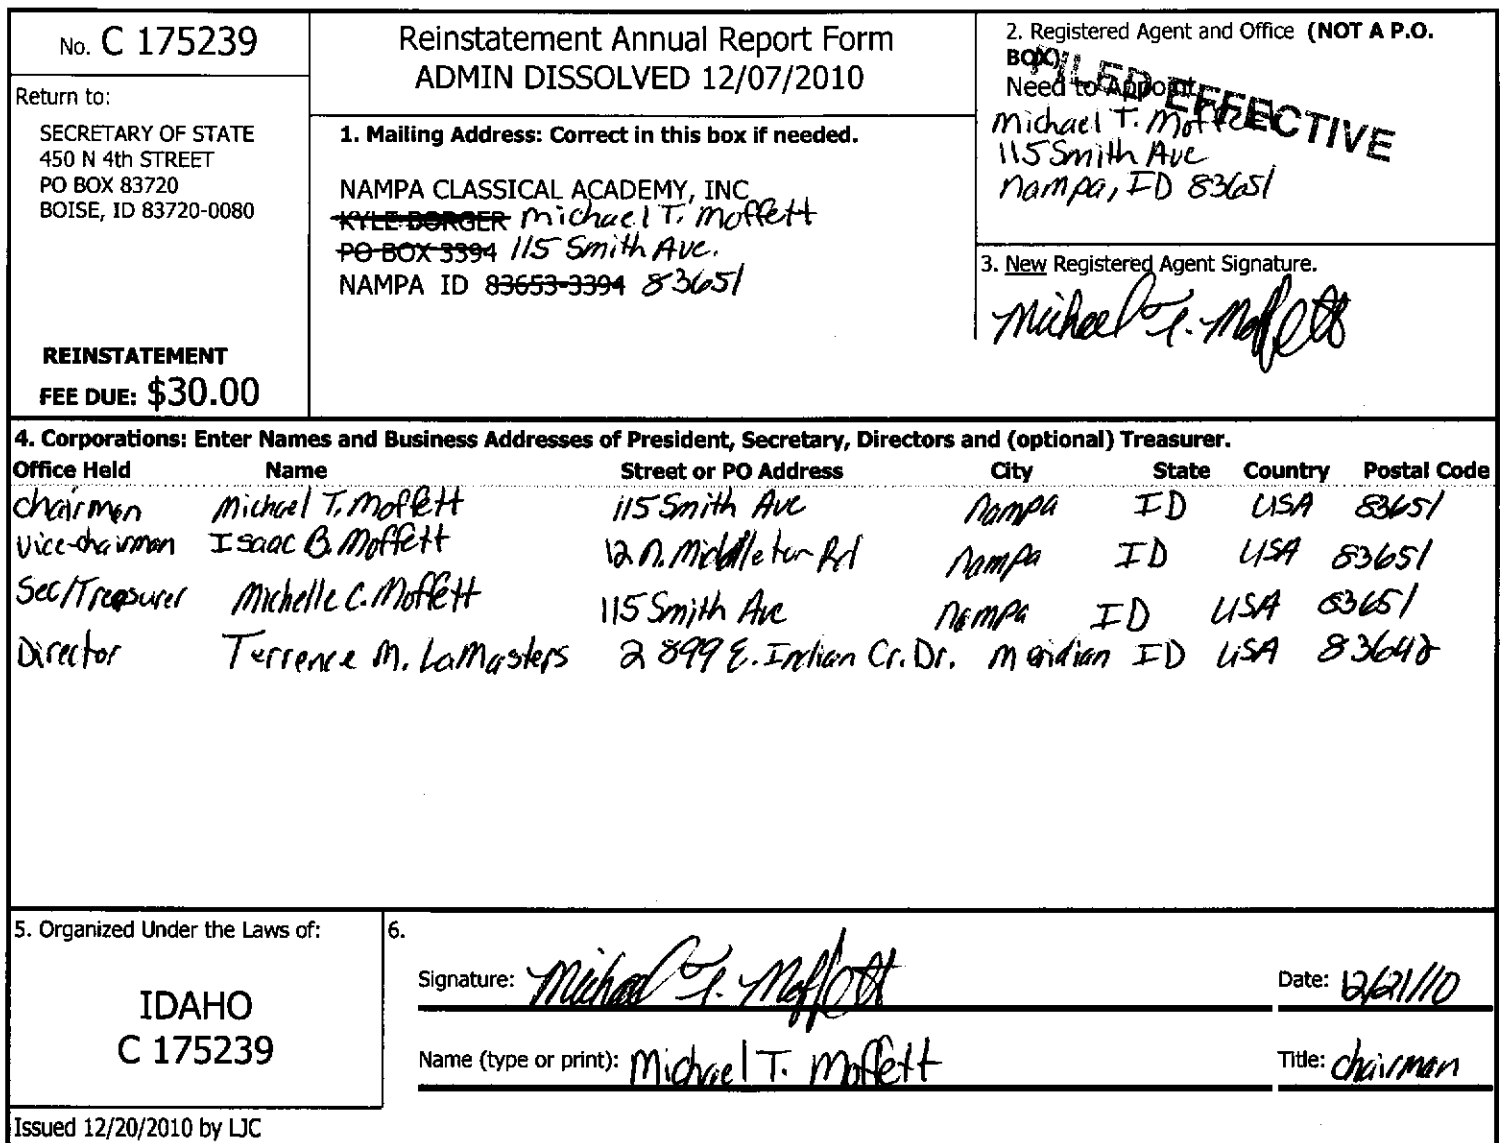 No. C 175239
Return to:
SECRETARY OF STATE
450 N 4th STREET
PO BOX 83720
BOISE, ID 83720-0080
REINSTATEMENT
FEE DUE: $30.00
Reinstatement Annual Report Form
ADMIN DISSOLVED 12/07/2010
1. Mailing Address: Correct in this box if needed.
NAMPA CLASSICAL ACADEMY, INC
KYLE BORGER Michael T. Moffett
PO BOX 3394 115 Smith Ave.
NAMPA ID 83653-3394 83651
2. Registered Agent and Office (NOT A P.O.
BOX)
Need to Appoint
FILED EFFECTIVE
Michael T. Moffett
115 Smith Ave
Nampa, ID 83651
3. New Registered Agent Signature.
Michael T. Moffett
4. Corporations: Enter Names and Business Addresses of President, Secretary, Directors and (optional) Treasurer.
Office Held Name Street or PO Address City State Country Postal Code
Chairman Michael T. Moffett 115 Smith Ave Nampa ID USA 83651
Vice-chairman Isaac B. Moffett 12 N. Middleton Rd Nampa ID USA 83651
Sec/Treasurer Michelle C. Moffett 115 Smith Ave Nampa ID USA 83651
Director Terrence M. LaMasters 2899 E. Indian Cr. Dr. Meridian ID USA 83642
5. Organized Under the Laws of:
IDAHO
C 175239
6.
Signature: Michael T. Moffett Date: 12/21/10
Name (type or print): Michael T. Moffett Title: Chairman
Issued 12/20/2010 by LJC